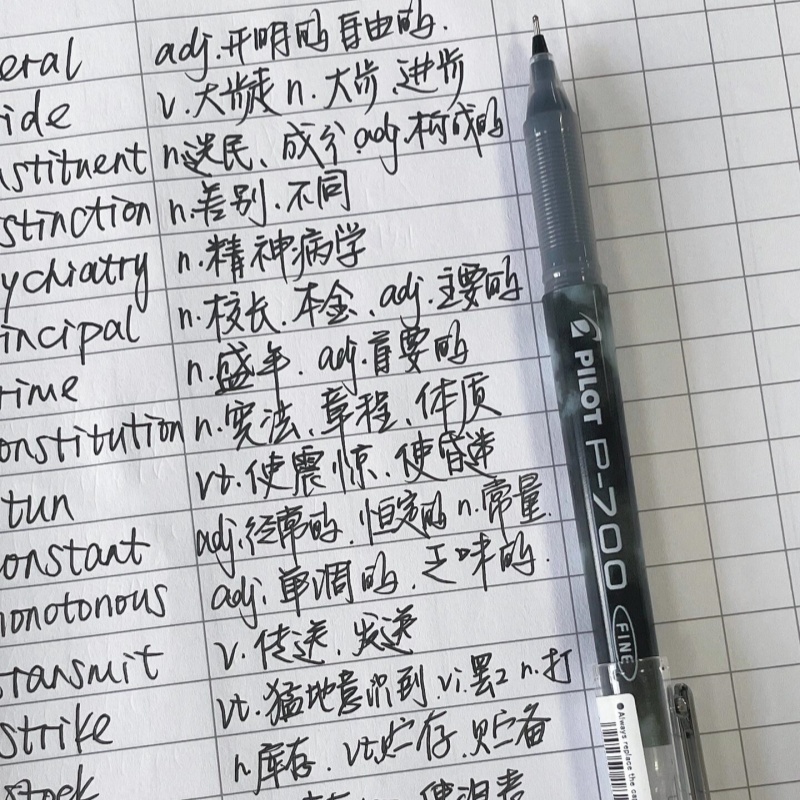 eral adj.开明的 自由的.
ide v.大步走 n.大步、进步
nstituent n.选民、成分.adj.构成的
stinction n.差别.不同
ychiatry n.精神病学
incipal n.校长.本金、adj.主要的
rime n.盛年. adj.首要的
onstitution n.宪法、章程、体质
tun vt.使震惊.使昏迷
onstant adj.经常的.恒定的 n.常量.
onotonous adj.单调的.乏味的.
ransmit v.传送.发送
strike vt.猛地意识到.vi.罢工 n.打
stock n.库存. vt.贮存.贮备
PILOT P-700
FINE
Always replace the ca